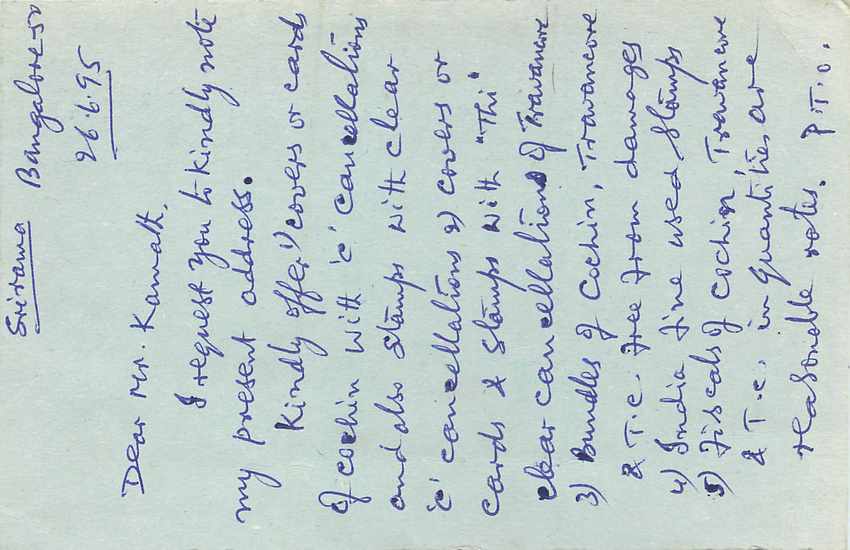 Srirama
Bangalore-50
26.6.95
Dear Mr. Kamath,
I request you to kindly note
my present address.
Kindly offer 1) covers or cards
of cochin with 'c' cancellations
and also stamps with clear
'c' cancellations 2) covers or
cards & stamps with "Tri"
clear cancellations of Travancore
3) Bundles of Cochin, Travancore
& T.C. free from damages
4) India fine used stamps
5) Fiscals of cochin, Travancore
& T.C. in quantities are
reasonable rates. P.T.O.